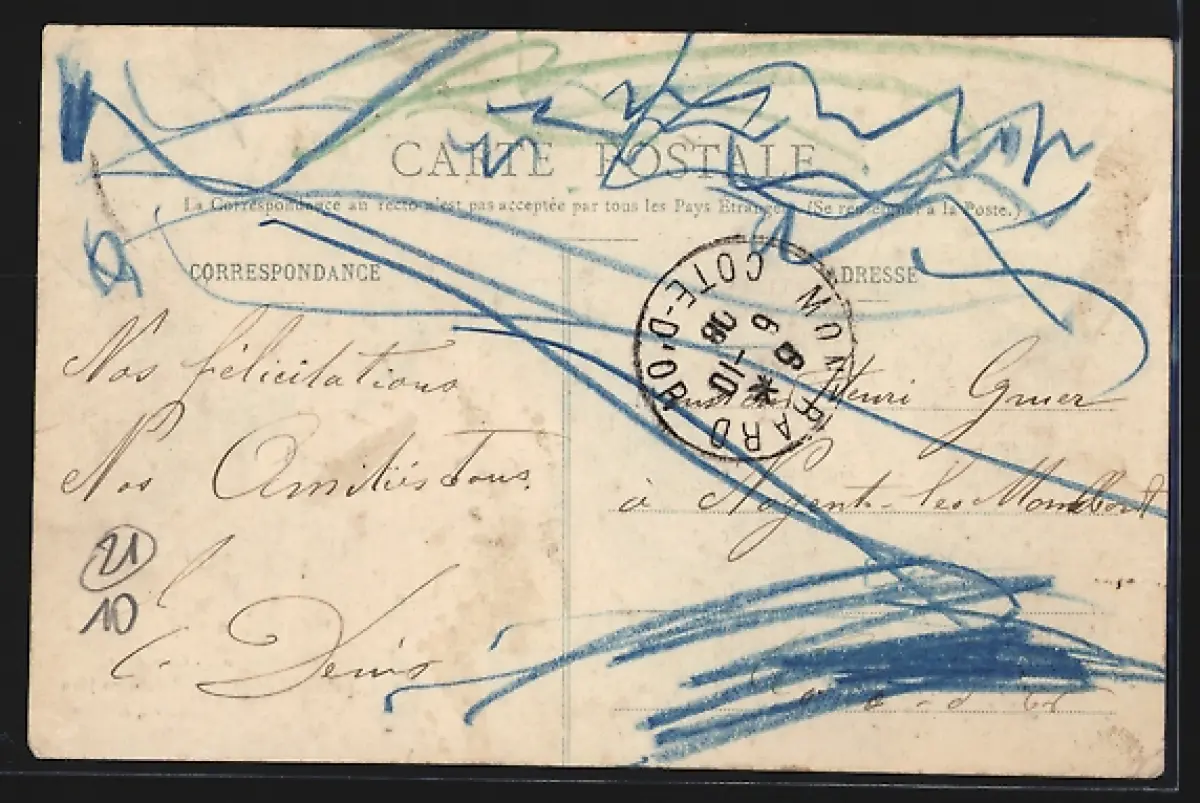 CARTE POSTALE
La Correspondance au recto n'est pas acceptée par tous les Pays Etrangers (Se renseigner à la Poste.)
CORRESPONDANCE
ADRESSE
MONTBARD COTE-D'OR
6 * 5-10 08
Nos félicitations
Nos Amitiés Tous
Denis
Henri
à Nogent-les-Montbard
21
10